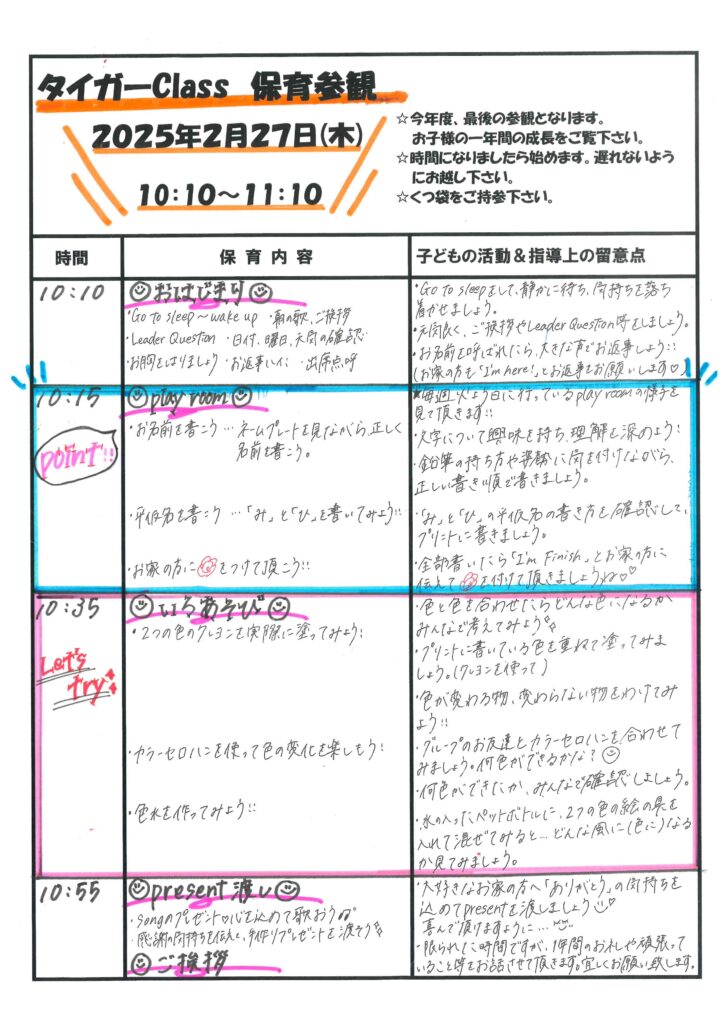 タイガーClass 保育参観
2025年2月27日(木)
10:10～11:10
☆今年度、最後の参観となります。
お子様の一年間の成長をご覧下さい。
☆時間になりましたら始めます。遅れないよう
にお越し下さい。
☆くつ袋をご持参下さい。
時間
保育内容
子どもの活動＆指導上の留意点
10:10
おはじまり
・Go to sleep～wake up ・朝の歌、ご挨拶
・Leader Question ・日付、曜日、天気の確認
・お部屋をはりましょう ・お返事ハイに ・出席点呼
・Go to sleepをして、静かに待ち、気持ちを落ち
着かせましょう。
・元気良く、ご挨拶やLeader Question等をしましょう。
・お名前を呼ばれたら、大きな声でお返事しよう!!
(お家の方も「I'm here!」とお返事をお願いします♡)
10:15
point!!
play room
・お名前を書こう …ネームプレートを見ながら、正しく
名前を書こう。
・平仮名を書こう …「み」と「ひ」を書いてみよう!!
・お家の方に をつけて頂こう!!
★毎週火よう日に行っているplay roomの様子を
見て頂きます!!
・文字について興味を持ち、理解を深めよう!
・鉛筆の持ち方や姿勢に気を付けながら、
正しい書き順で書きましょう。
・「み」と「ひ」の平仮名の書き方を確認して、
プリントに書きましょう。
・全部書いたら「I'm Finish」とお家の方に
伝えて を付けて頂きましょうね♡♡
10:35
Let's
try
いろあそび
・2つの色のクレヨンを実際に塗ってみよう!
・カラーセロハンを使って色の変化を楽しもう!
・色水を作ってみよう!!
・色と色を合わせたらどんな色になるか
みんなで考えてみよう
・プリントに書いている色を重ねて塗ってみま
しょう。(クレヨンを使って)
・色が変わる物、変わらない物をわけてみ
よう!!
・グループのお友達とカラーセロハンを合わせて
みましょう。何色ができるかな？
・何色ができたか、みんなで確認しましょう。
・水の入ったペットボトルに、2つの色の絵の具を
入れて混ぜてみると…どんな風に(色に)なる
か見てみましょう。
10:55
present渡し
・songのプレゼント♡心を込めて歌おう
・感謝の気持ちを伝え、手作りプレゼントを渡そう
ご挨拶
・大好きなお家の方へ「ありがとう」の気持ちを
込めてpresentを渡しましょう
喜んで頂けますように…
・限られた時間ですが、1年間のお礼や頑張って
いること等をお話させて頂きます。宜しくお願い致します。